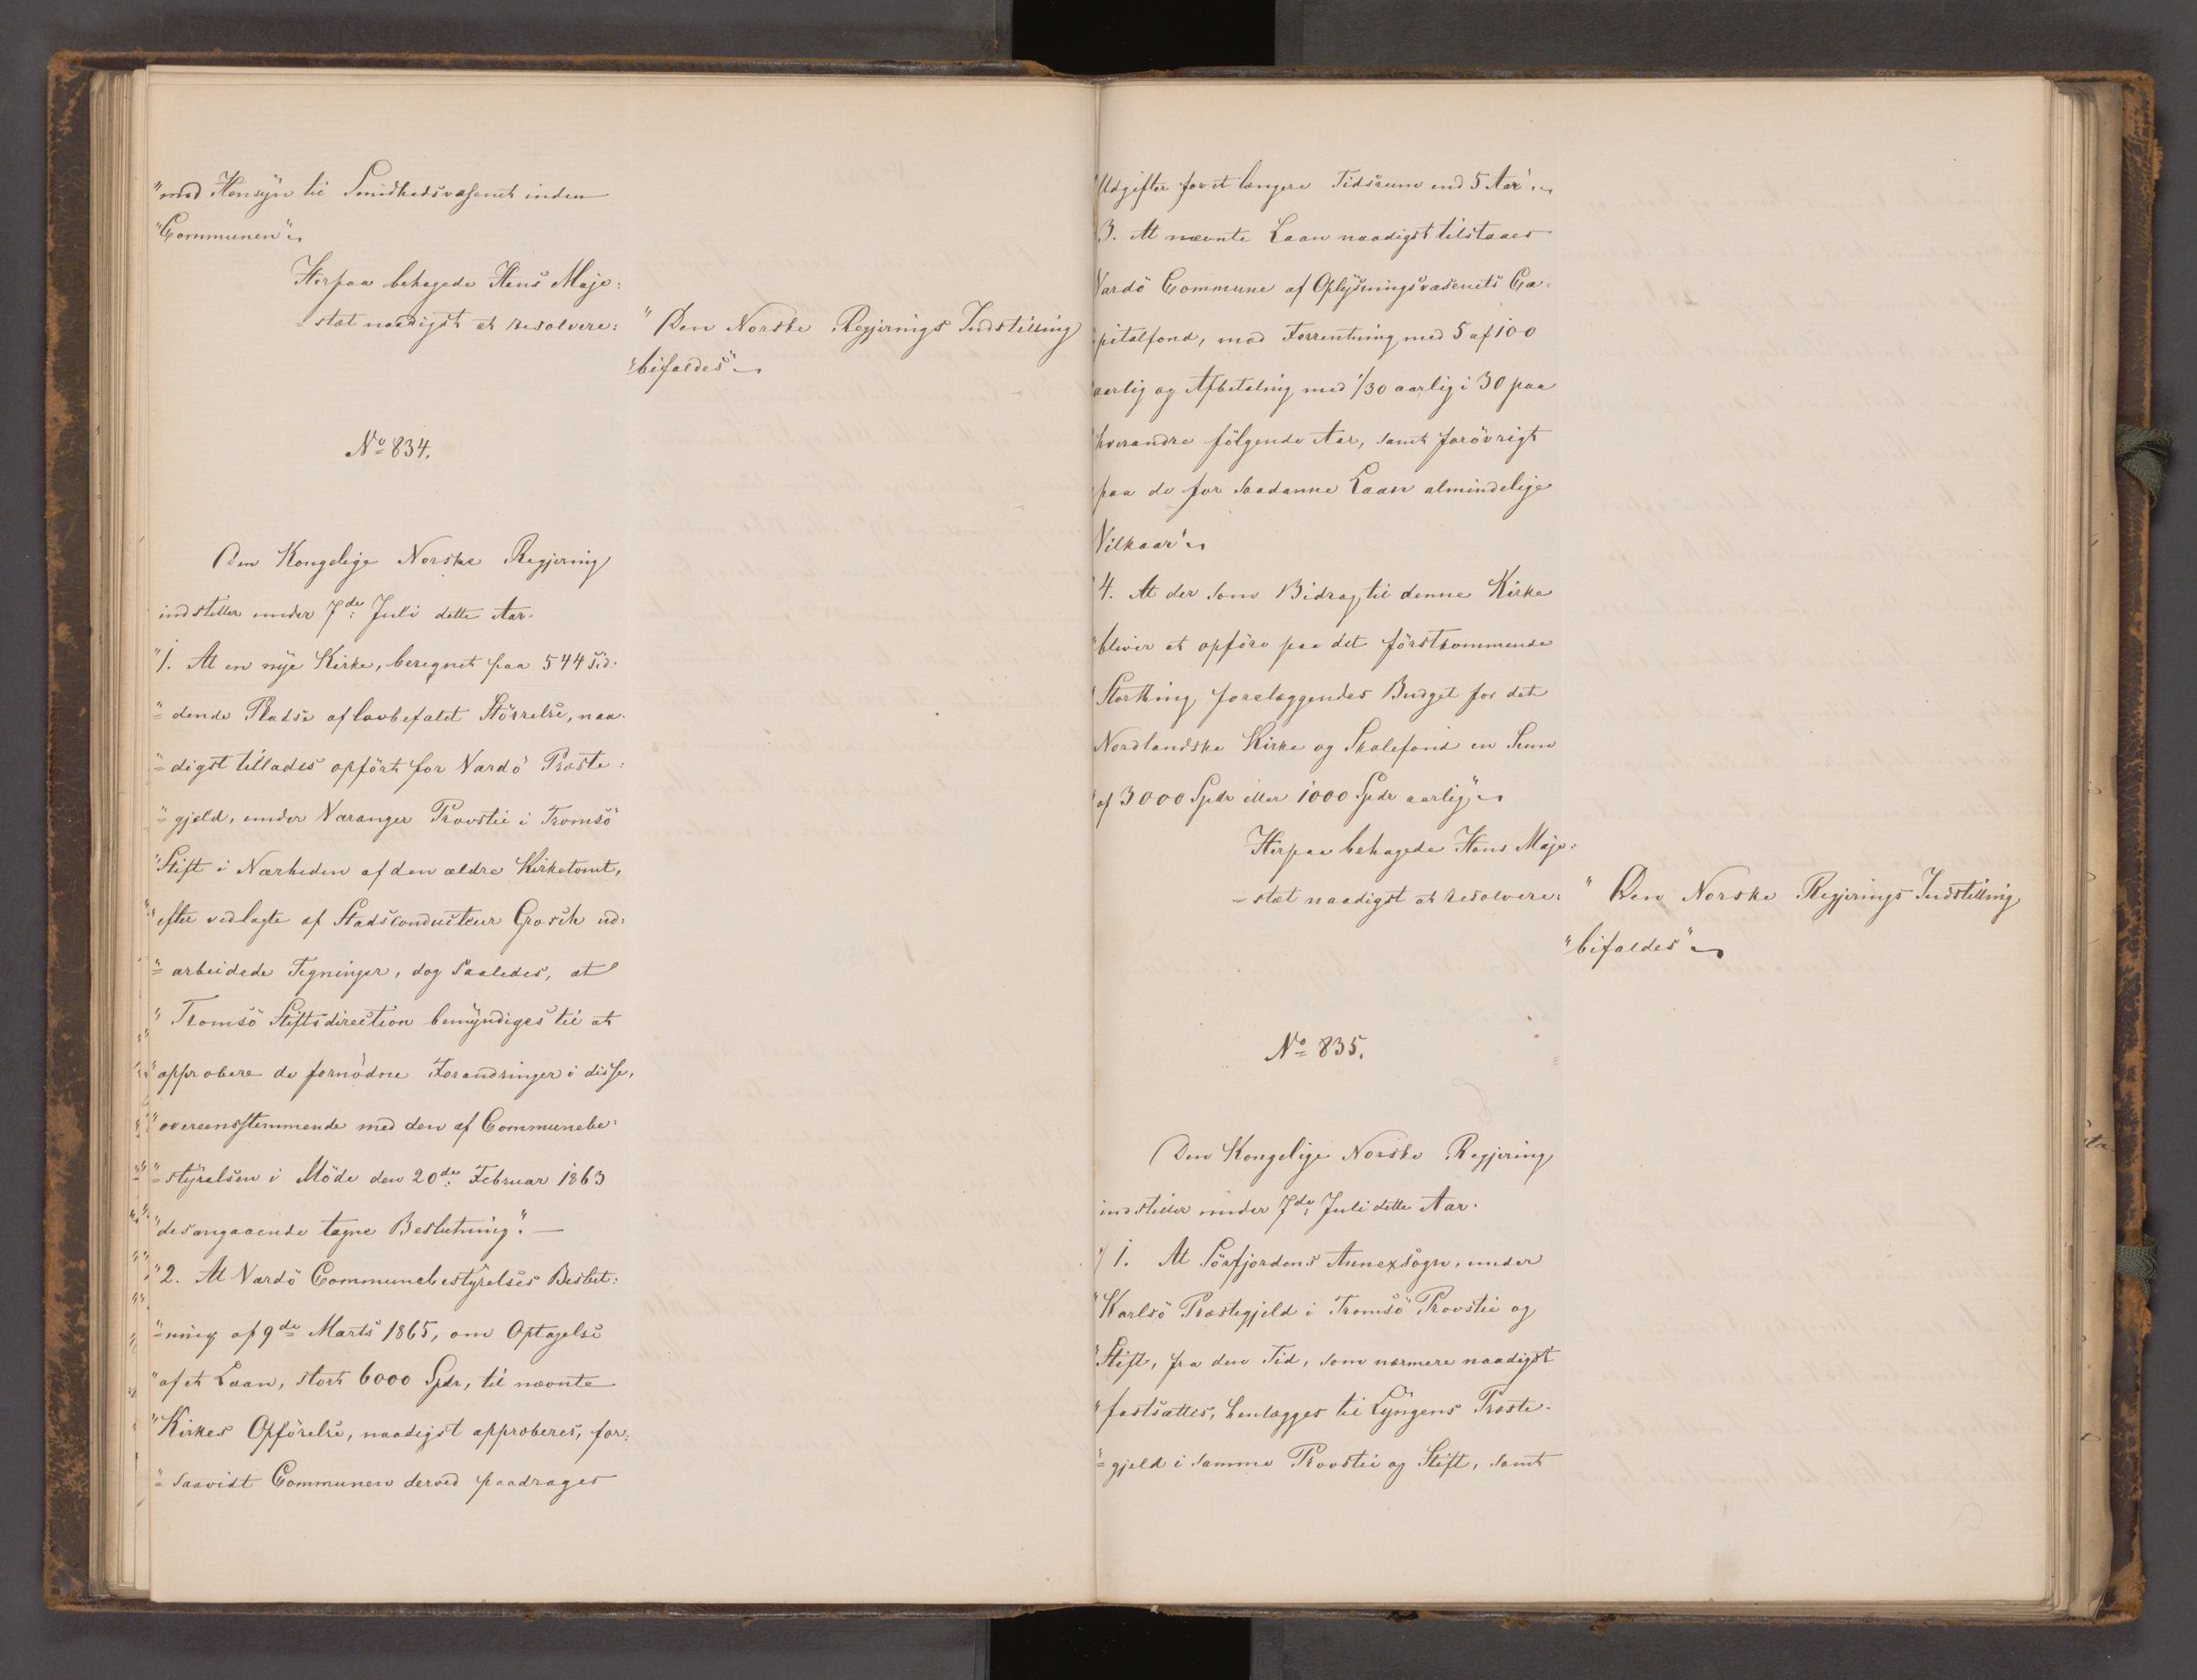 "med Hensyn til Sundhedsvæsenet inden
"Communen".
Herpaa behagede Hans Maje:
=stæt naadigst at resolvere:
"Den Norske Regjerings Indstilling
"bifaldes".
No 834.
Den Kongelige Norske Regjering
indstiller under 7de: Juli dette Aar.
"1. At en nye Kirke, beregnet paa 544 Sid-
"=dende Pladse af lovbefalet Störrelse, naa-
"=digst tillades opfört for Vardö Præste:
"=gjeld, under Varanger Provstie i Tromsö
"Stift i Nærheden af den ældre Kirketomt,
"efter vedlagte af Stadsconducteur Grosch ud:
"=arbeidede Tegninger, dog saaledes, at
"Tromsö Stiftsdirection bemyndiges til at
"approbere de fornödne Forandringer i disse,
"overeensstemmende med den af Communebe:
"=styrelsen i Möde den 20de: Februar 1863
"desangaaende tagne Beslutning". —
"2. At Vardö Communebestyrelses Beslut:
"=ning af 9de Marts 1865, om Optagelse
"af et Laan, stort 6000 Spdr, til nævnte
"Kirkes Opförelse, naadigst approberes, for:
"=saavidt Communen derved paadrages
"Udgifter for et længere Tidsrum end 5 Aar".
"3. At nævnte Laan naadigst tilstaaes
"Vardö Commune af Oplysningsvæsenets Ca-
"pitalfond, mod Forrentning med 5 af 100
"aarlig og Afbetaling med 1/30 aarlig i 30 paa
"hverandre fölgende Aar, samt forövrigt
"paa de for saadanne Laan almindelige
"Vilkaar".
"4. At der som Bidrag til denne Kirke
"bliver at opföre paa det förstkommende
"Storthing forelæggendes Budget for det
"Nordlandske Kirke og Skolefond en Sum
"af 3000 Spdr eller 1000 Spdr aarlig".
Herpaa behagede Hans Maje:
=stæt naadigst at resolvere:
"Den Norske Regjerings Indstilling
"bifaldes".
No 835.
Den Kongelige Norske Regjering
indstiller under 7de: Juli dette Aar.
"1. At Sörfjordens Annexsogn, under
"Karlsö Præstegjeld i Tromsö Provstie og
"Stift, fra den Tid, som nærmere naadigst
"fastsættes, henlægges til Lyngens Præste-
"=gjeld i samme Provstie og Stift, samt